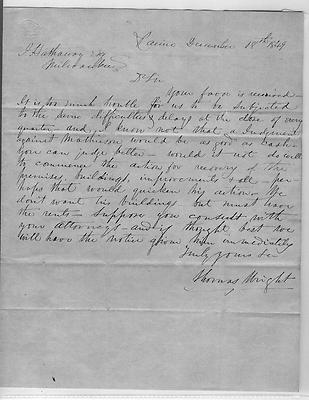 Racine December 18th 1849
J. Hathaway Esq
Milwaukee
Dr Sir
Your favor is received
It is too much trouble for us to be subjected
to the same difficulties & delays at the close of every
quarter and I know not that a Judgment
against Mathewson would be as good as Cash
You can judge better - would it not do well
to commence the action for recovery of the
premises, buildings, improvements & all - per
haps that would quicken his action - We
don't want his buildings but must have
the rents - suppose you consult with
your attorneys - and if thought best we
will have the notice given him immediately
Truly yours &c
Thomas Wright